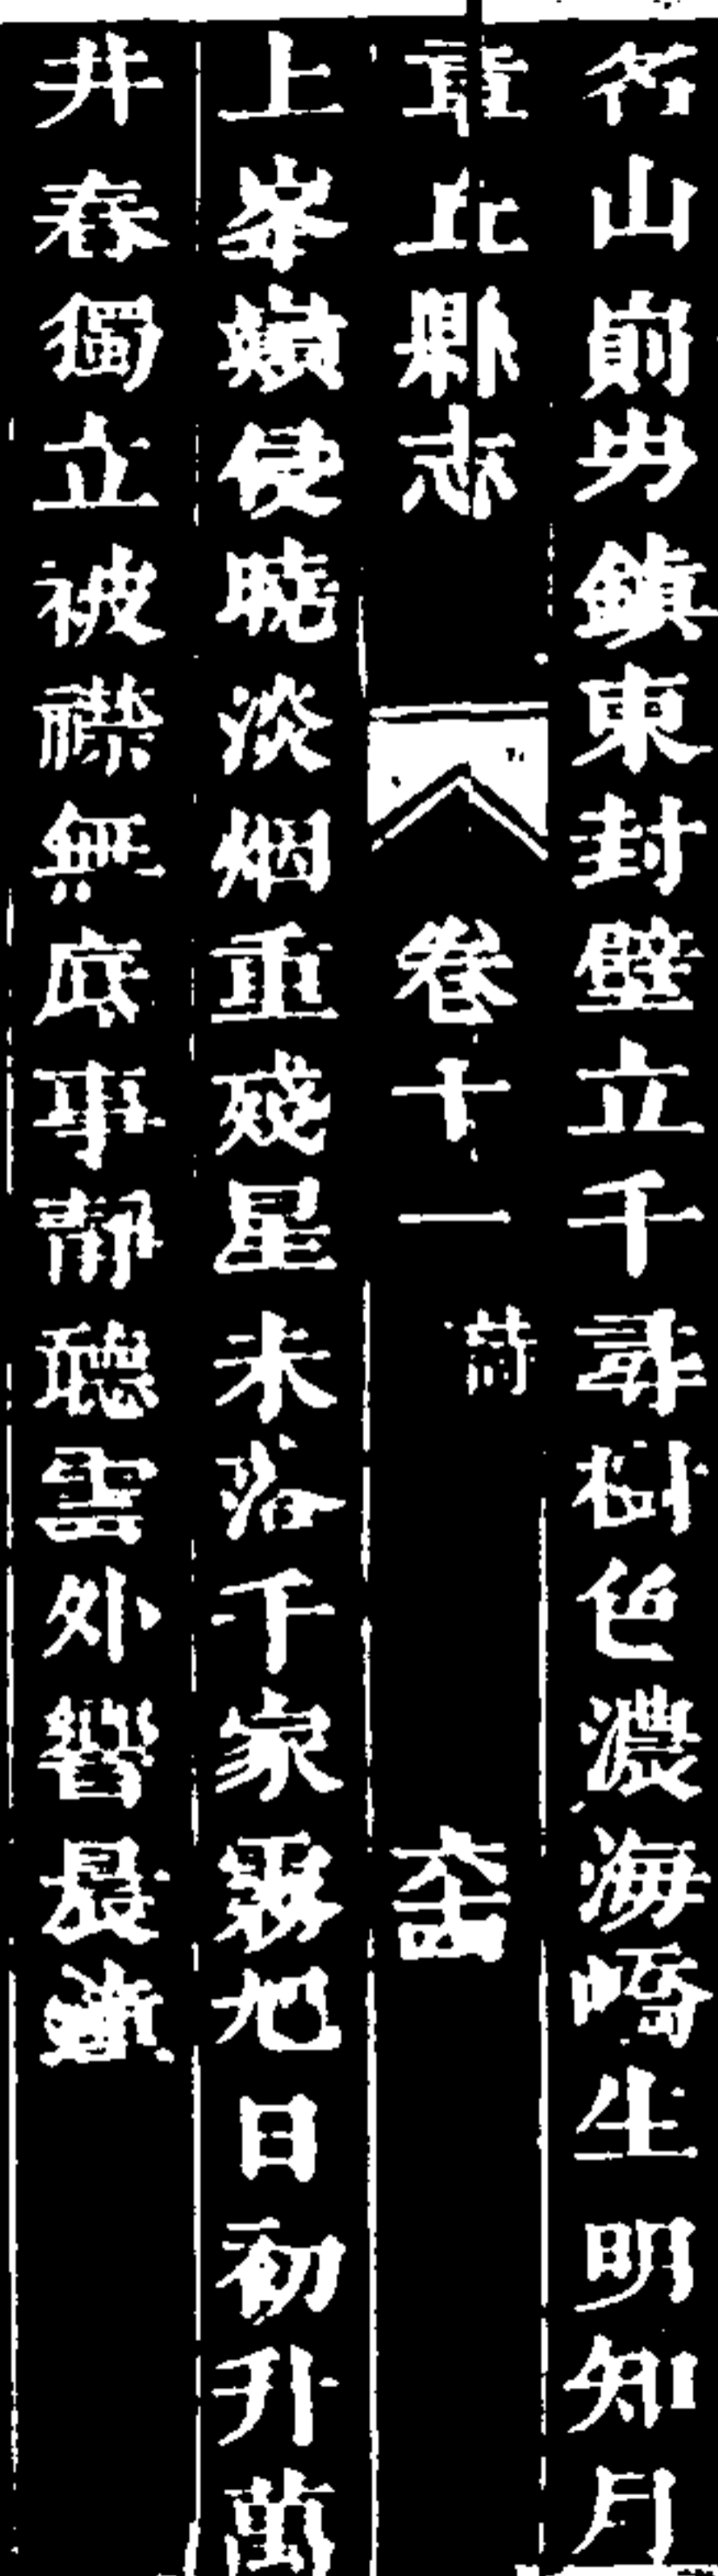 名山崱屴鎮東封壁立千尋樹色濃海嶠生明知月
縣志 卷十一 六十四
上峯巔使曉淡烟重殘星未落千家霧旭日初升萬
井春獨立被襟無底事靜聽雲外響晨